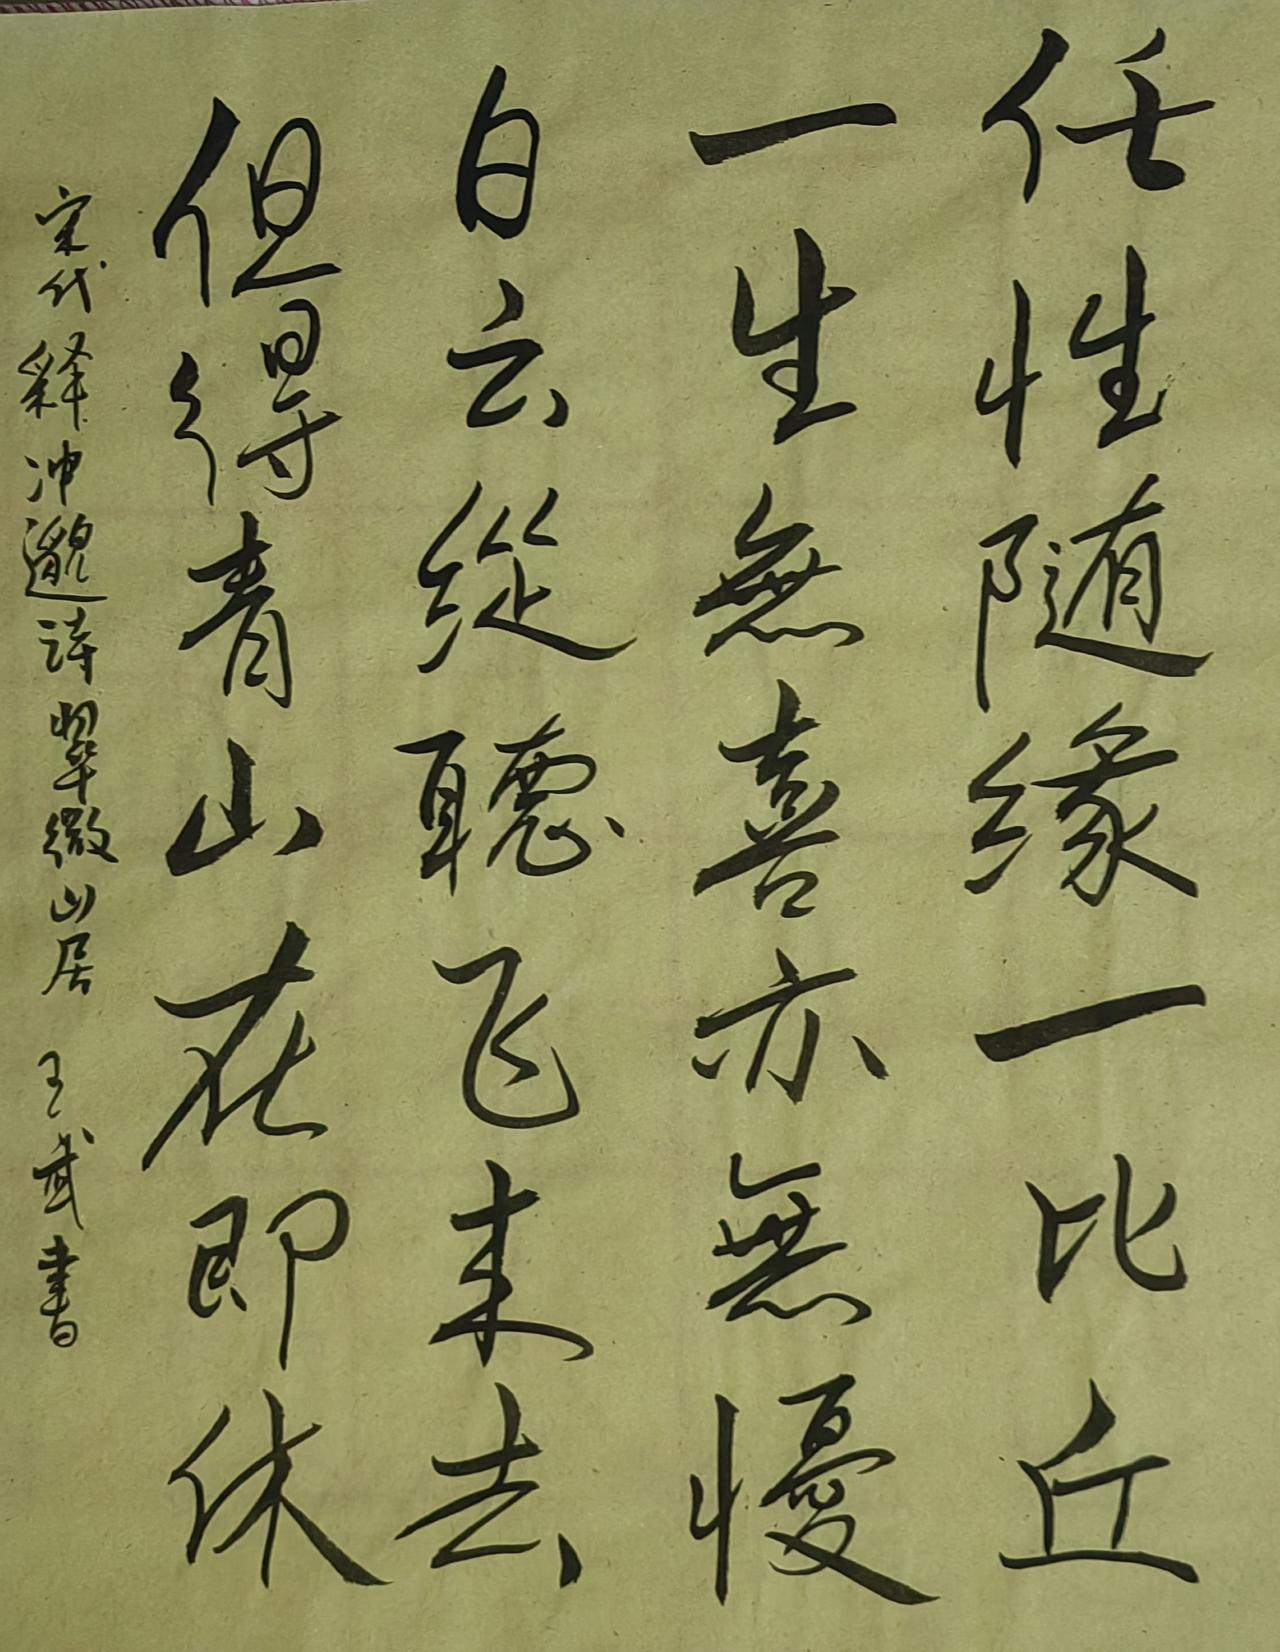 任性随缘一比丘
一生無喜亦無懮
白云縱聽飞来去
但得青山在即休
宋代释冲邈诗翠微山居 王武書